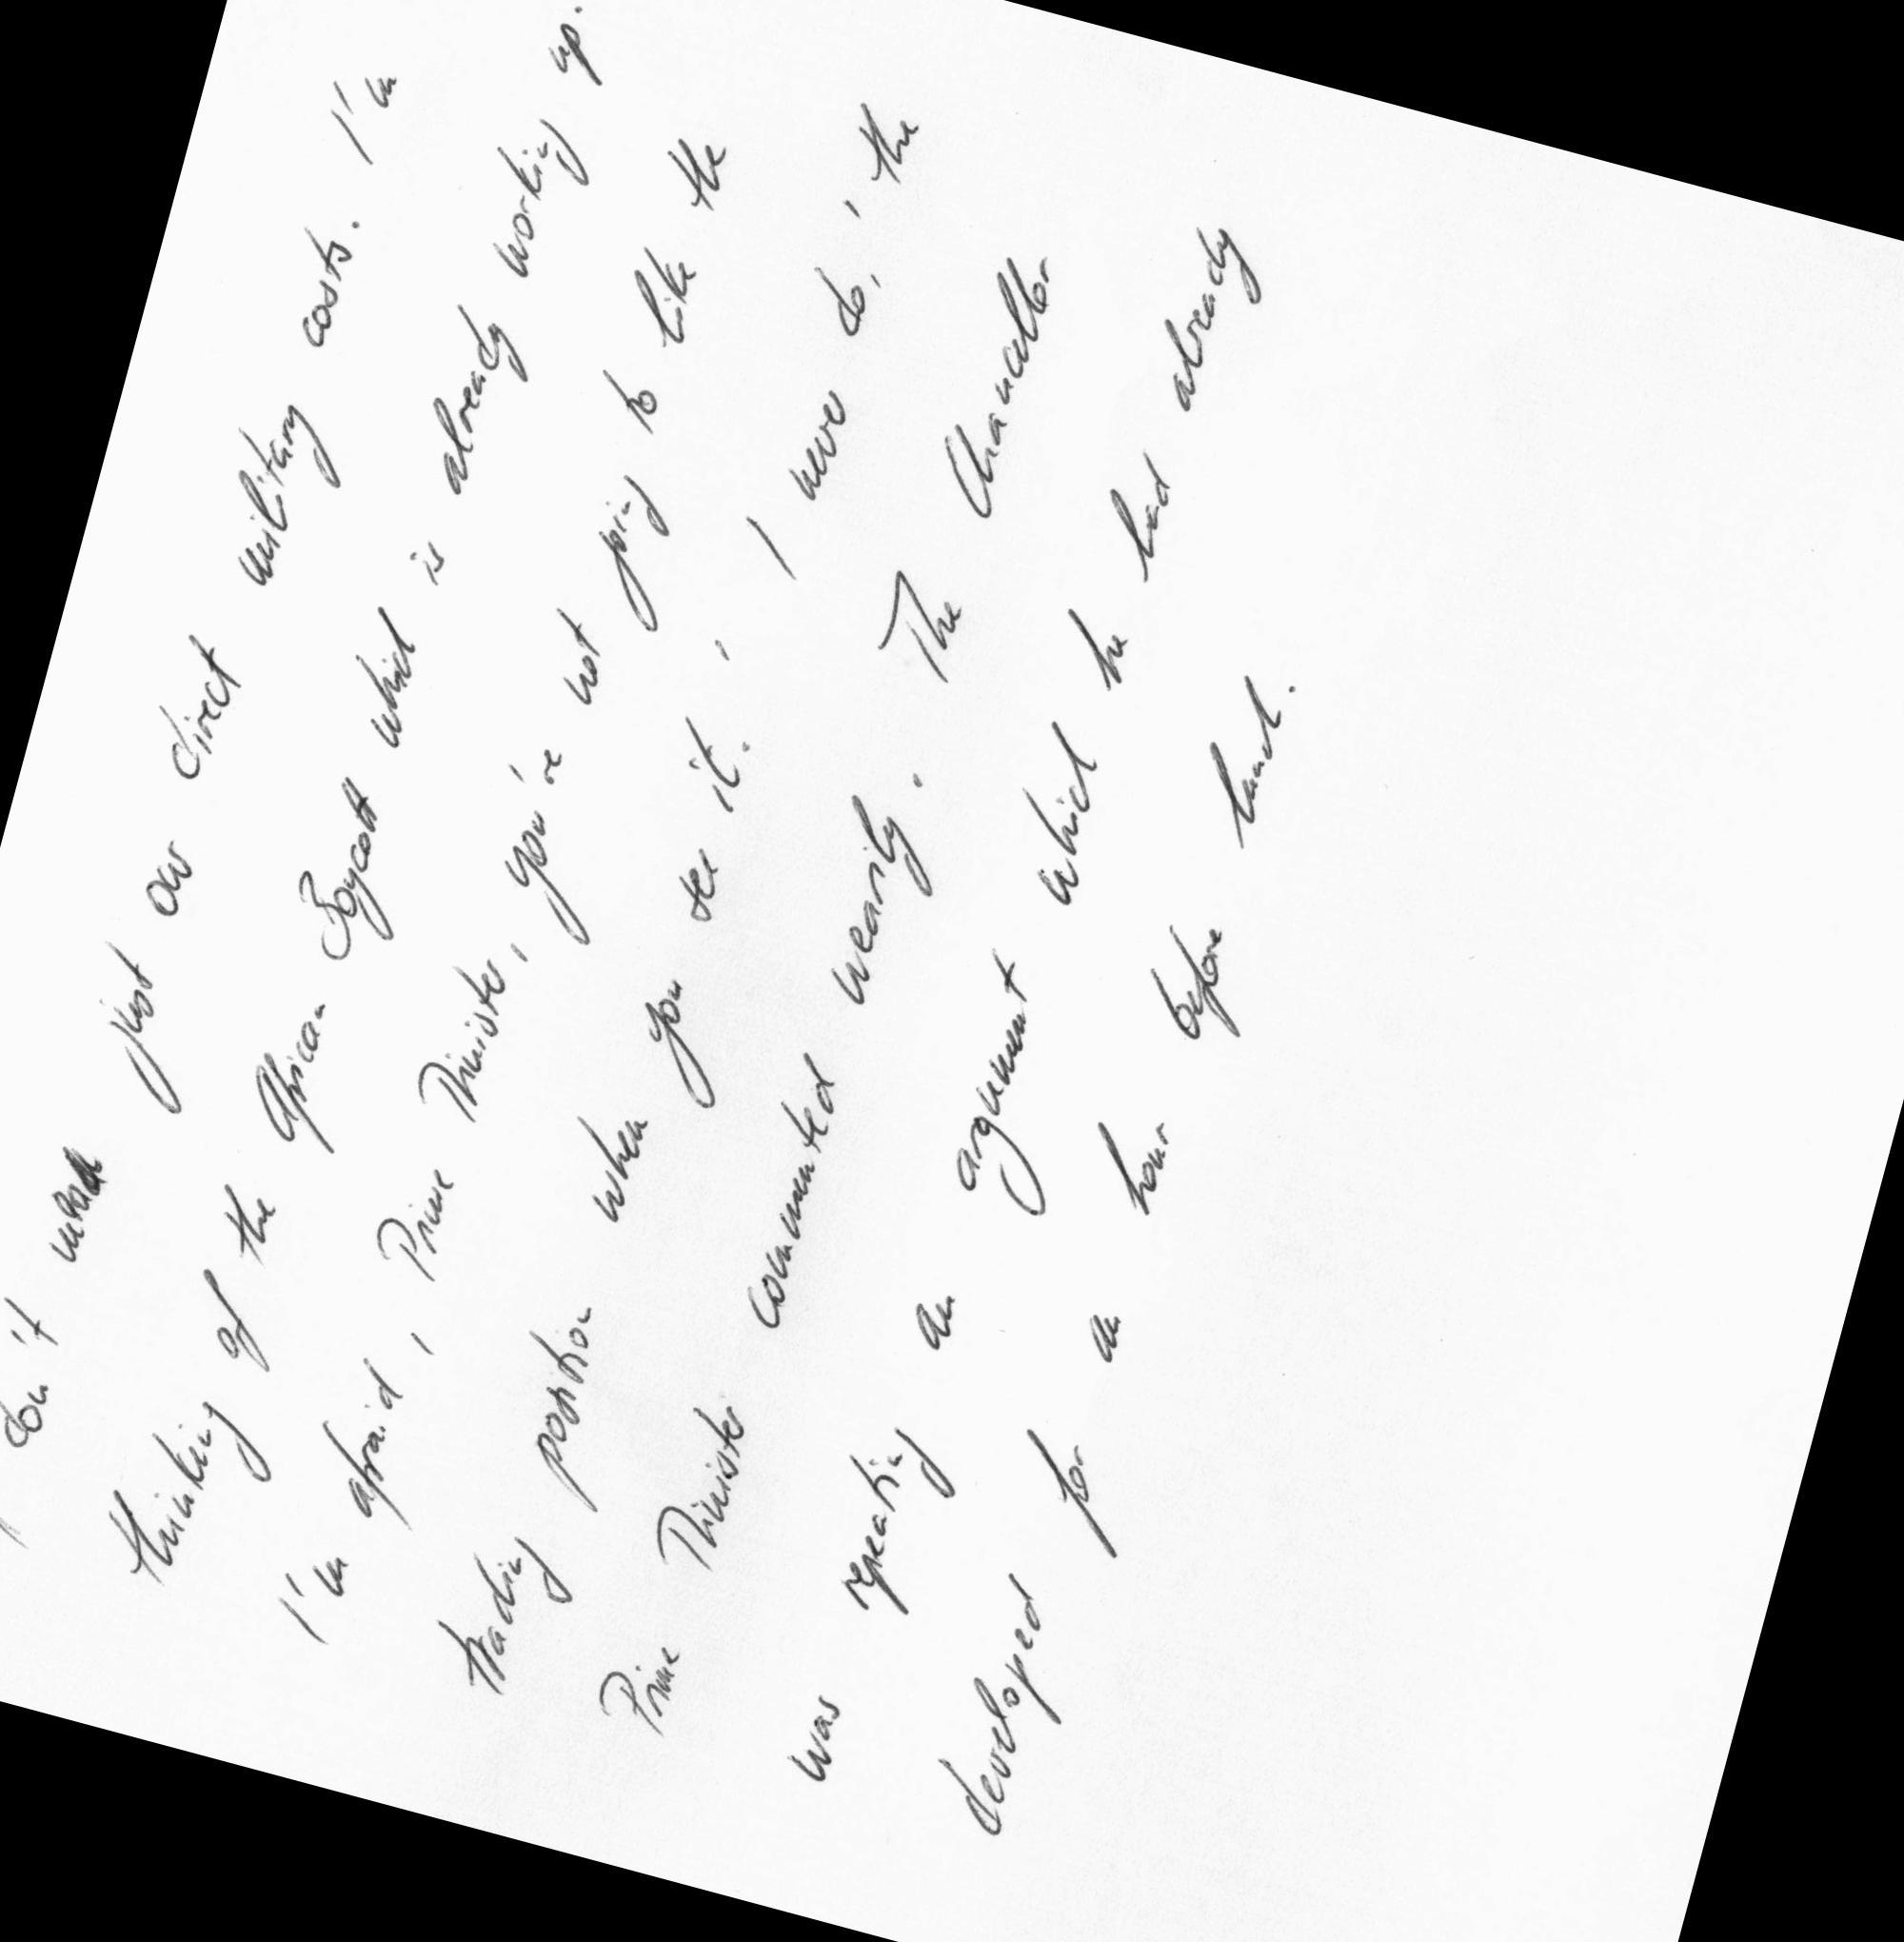 don't mean just our direct military costs. I'm
thinking of the African Boycott which is already working up.
I'm afraid, Prime Minister, you're not going to like the
trading position when you see it.' 'I never do,' the
Prime Minister commented wearily. The Chancellor
was repeating an argument which he had already
developed for an hour before lunch.